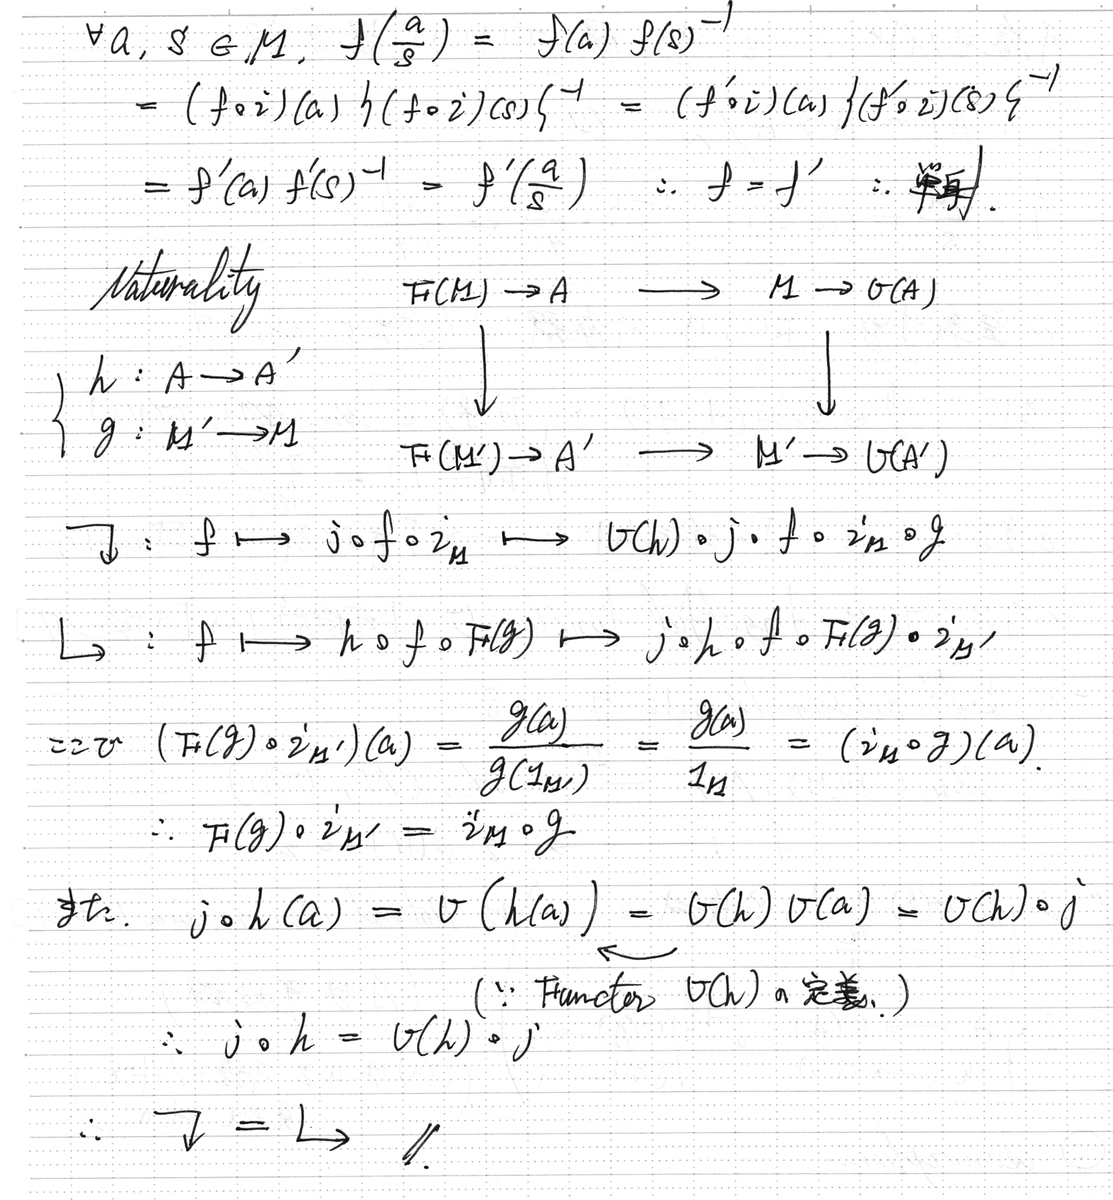 ∀a, s ∈ M, f(a/s) = f(a) f(s)⁻¹
= (f∘i)(a) {(f∘i)(s)}⁻¹ = (f'∘i)(a) {(f'∘i)(s)}⁻¹
= f'(a) f'(s)⁻¹ = f'(a/s) ∴ f = f' ∴ 単射.
Naturality F(M) → A ⟶ M → U(A)
↓ ↓
{ h : A → A'
g : M' → M
F(M') → A' ⟶ M' → U(A')
⤵ : f ⟼ j∘f∘i_M ⟼ U(h)∘j∘f∘i_M∘g
↳ : f ⟼ h∘f∘F(g) ⟼ j∘h∘f∘F(g)∘i_M'
ここで (F(g)∘i_M')(a) = g(a)/g(1_M') = g(a)/1_M = (i_M∘g)(a).
∴ F(g)∘i_M' = i_M∘g
また. j∘h(a) = U(h(a)) = U(h)U(a) = U(h)∘j
(∵ Functor U(h)の定義.)
∴ j∘h = U(h)∘j
∴ ⤵ = ↳ //.